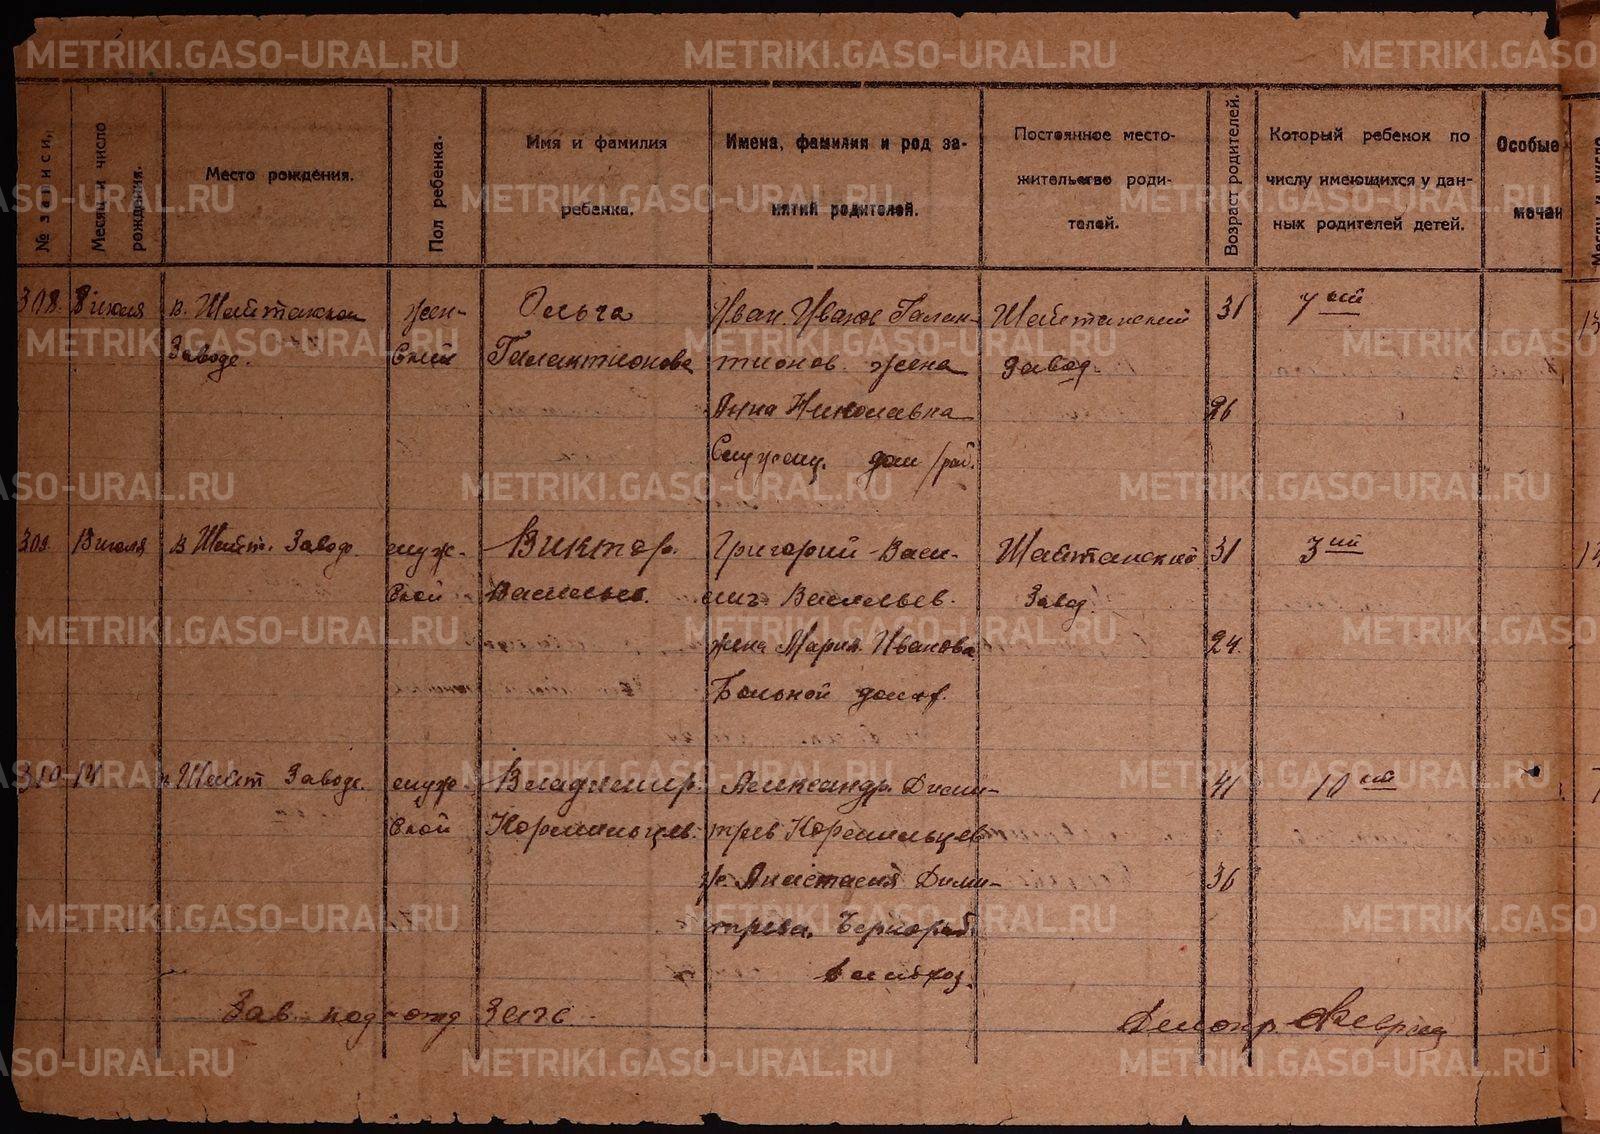 METRIKI.GASO-URAL.RU METRIKI.GASO-URAL.RU METRIKI.GASO
№ записи,
Месяц и число рождения.
Место рождения.
Пол ребенка.
Имя и фамилия
ребенка.
Имена, фамилии и род за-
нятий родителей.
Постоянное место-
жительство роди-
телей.
Возраст родителей.
Который ребенок по
числу имеющихся у дан-
ных родителей детей.
Особые
мечан
308. 8 июля в. Шайтанском
Заводе.
жен-
ский
Ольга
Галактионова
Иван Иванов Галак-
тионов жена
Анна Николавна
дом
Шайтанский
завод.
31
26
7 ый
309. июля в Шайт. Заводе.
муж-
ской
Виктор.
Васильев.
Григорий Васи-
Васильев.
жена Мария Иванова
дом
Шайтанский
Завод.
31
24.
3 ий
310 14 в Шайт Заводе.
муж-
ской
Владимир.
Кормильцев.
Александр. Дими-
трев Кормильцев
ж. Анастасия Дими-
трева.
41
36
10 ый
Зав. под-отд Загс.